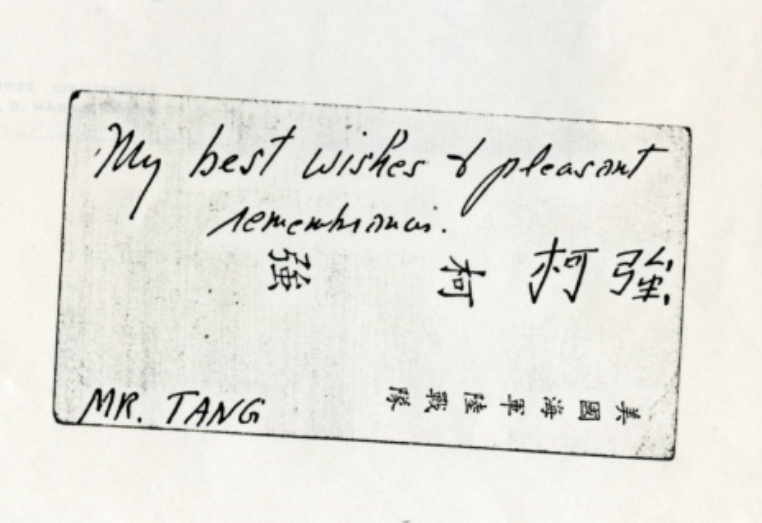 My best wishes & pleasant
remembrances.
柯強
柯 強
美國海軍陸戰隊
MR. TANG